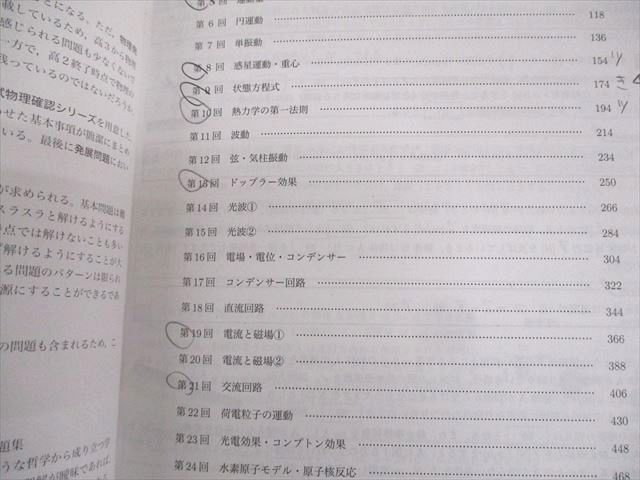 とになる。ただ，物理発
載しているため，高3から物理
感じられる問題も少なくないで
一方で，高2終了時点で物理の
残っているのではないだろうか
式物理確認シリーズを用意した
わせた基本事項が簡潔にまとめ
いる。最後に発展問題におい
が求められる。基本問題は難
スラスラと解けるようにする
時点では解けないことも多い
解けるようにすることが大
る問題のパターンは限られ
源にすることができるであ
の問題も含まれるため，こ
題集
うな哲学から成り立つ学
第6回 円運動 118
第7回 単振動 136
第8回 惑星運動・重心 154
第9回 状態方程式 174
第10回 熱力学の第一法則 194
第11回 波動 214
第12回 弦・気柱振動 234
第13回 ドップラー効果 250
第14回 光波① 266
第15回 光波② 284
第16回 電場・電位・コンデンサー 304
第17回 コンデンサー回路 322
第18回 直流回路 344
第19回 電流と磁場① 366
第20回 電流と磁場② 388
第21回 交流回路 406
第22回 荷電粒子の運動 430
第23回 光電効果・コンプトン効果 448
第24回 水素原子モデル・原子核反応 468